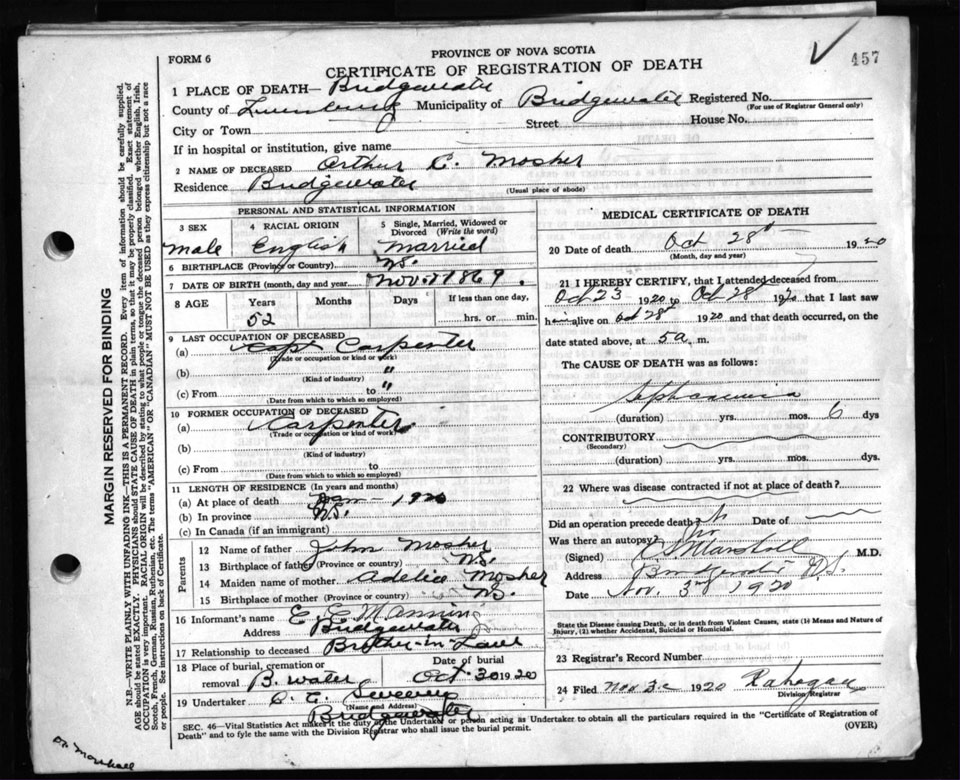 457
FORM 6
PROVINCE OF NOVA SCOTIA
CERTIFICATE OF REGISTRATION OF DEATH
1 PLACE OF DEATH— Bridgewater
County of Lunenburg Municipality of Bridgewater Registered No.
(For use of Registrar General only)
City or Town Street House No.
If in hospital or institution, give name
2 NAME OF DECEASED Arthur C. Mosher
Residence Bridgewater (Usual place of abode)
PERSONAL AND STATISTICAL INFORMATION
3 SEX 4 RACIAL ORIGIN 5 Single, Married, Widowed or Divorced (Write the word)
Male English Married
6 BIRTHPLACE (Province or Country) N.S.
7 DATE OF BIRTH (month, day and year) Nov. 1869.
8 AGE Years Months Days If less than one day,
52 hrs. or min.
9 LAST OCCUPATION OF DECEASED
(a) Carpenter
(Trade or occupation or kind of work)
(b) "
(Kind of industry)
(c) From to "
(Date from which to which so employed)
10 FORMER OCCUPATION OF DECEASED
(a) Carpenter
(Trade or occupation or kind of work)
(b)
(Kind of industry)
(c) From to
(Date from which to which so employed)
11 LENGTH OF RESIDENCE (In years and months)
(a) At place of death 1920
(b) In province N.S.
(c) In Canada (if an immigrant)
Parents
12 Name of father John Mosher
13 Birthplace of father (Province or country) N.S.
14 Maiden name of mother Adelia Mosher
15 Birthplace of mother (Province or country) N.S.
16 Informant's name E. E. Manning
Address Bridgewater
17 Relationship to deceased Brother-in-Law
18 Place of burial, cremation or removal B. water Date of burial Oct. 30 1920
19 Undertaker Sweeny
(Name and Address)
Bridgewater
MEDICAL CERTIFICATE OF DEATH
20 Date of death Oct 28th 1920
(Month, day and year)
21 I HEREBY CERTIFY, that I attended deceased from
Oct 23 1920 to Oct 28 1920 that I last saw
him alive on Oct 28th 1920 and that death occurred, on the
date stated above, at 5 a, m.
The CAUSE OF DEATH was as follows:
(duration) yrs. mos. 6 dys
CONTRIBUTORY
(Secondary)
(duration) yrs. mos. dys.
22 Where was disease contracted if not at place of death?
Did an operation precede death? Date of
Was there an autopsy? no
(Signed) Marshall M.D.
Address Bridgewater N.S.
Date Nov. 3rd 1920
State the Disease causing Death, or in death from Violent Causes, state (1) Means and Nature of
Injury, (2) whether Accidental, Suicidal or Homicidal.
23 Registrar's Record Number
24 Filed Nov 3rd 1920
Division Registrar
SEC. 46—Vital Statistics Act make it the duty of the Undertaker or person acting as Undertaker to obtain all the particulars required in the "Certificate of Registration of
Death" and to fyle the same with the Division Registrar who shall issue the burial permit. (OVER)
MARGIN RESERVED FOR BINDING
N.B.—WRITE PLAINLY WITH UNFADING INK—THIS IS A PERMANENT RECORD. Every item of information should be carefully supplied.
AGE should be stated EXACTLY. PHYSICIANS should STATE CAUSE OF DEATH in plain terms, so that it may be properly classified. Exact statement of
OCCUPATION is very important. RACIAL ORIGIN will be described by stating to what people or tongue the deceased person belonged whether English, Irish,
Scotch, French, German, Russian, Ruthenian, etc. The terms "AMERICAN" OR "CANADIAN" MUST NOT BE USED as they express citizenship but not a race
or people. See instructions on back of Certificate.
Dr. Marshall